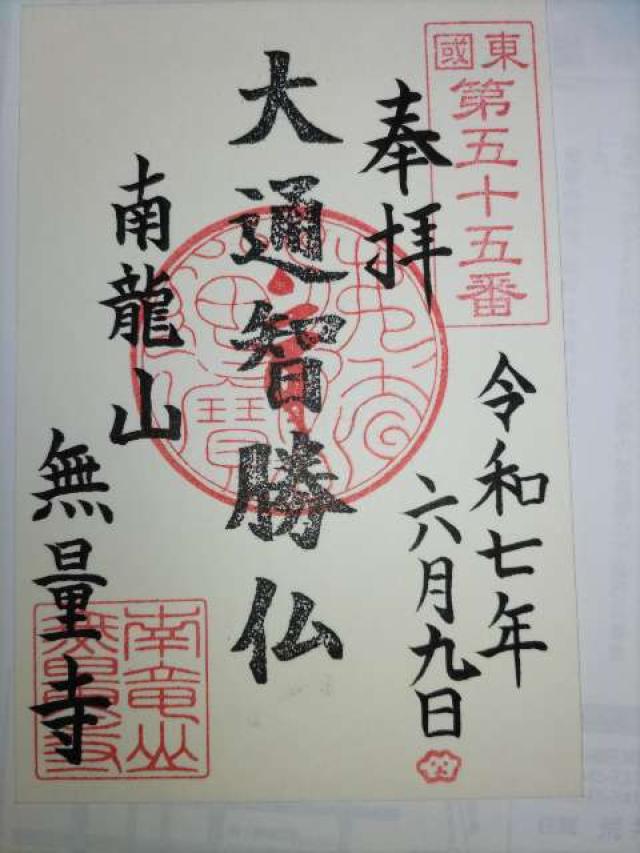 東國
第五十五番
奉拝
令和七年
六月九日
大通智勝仏
南龍山
無量寺
南竜山
無量寺